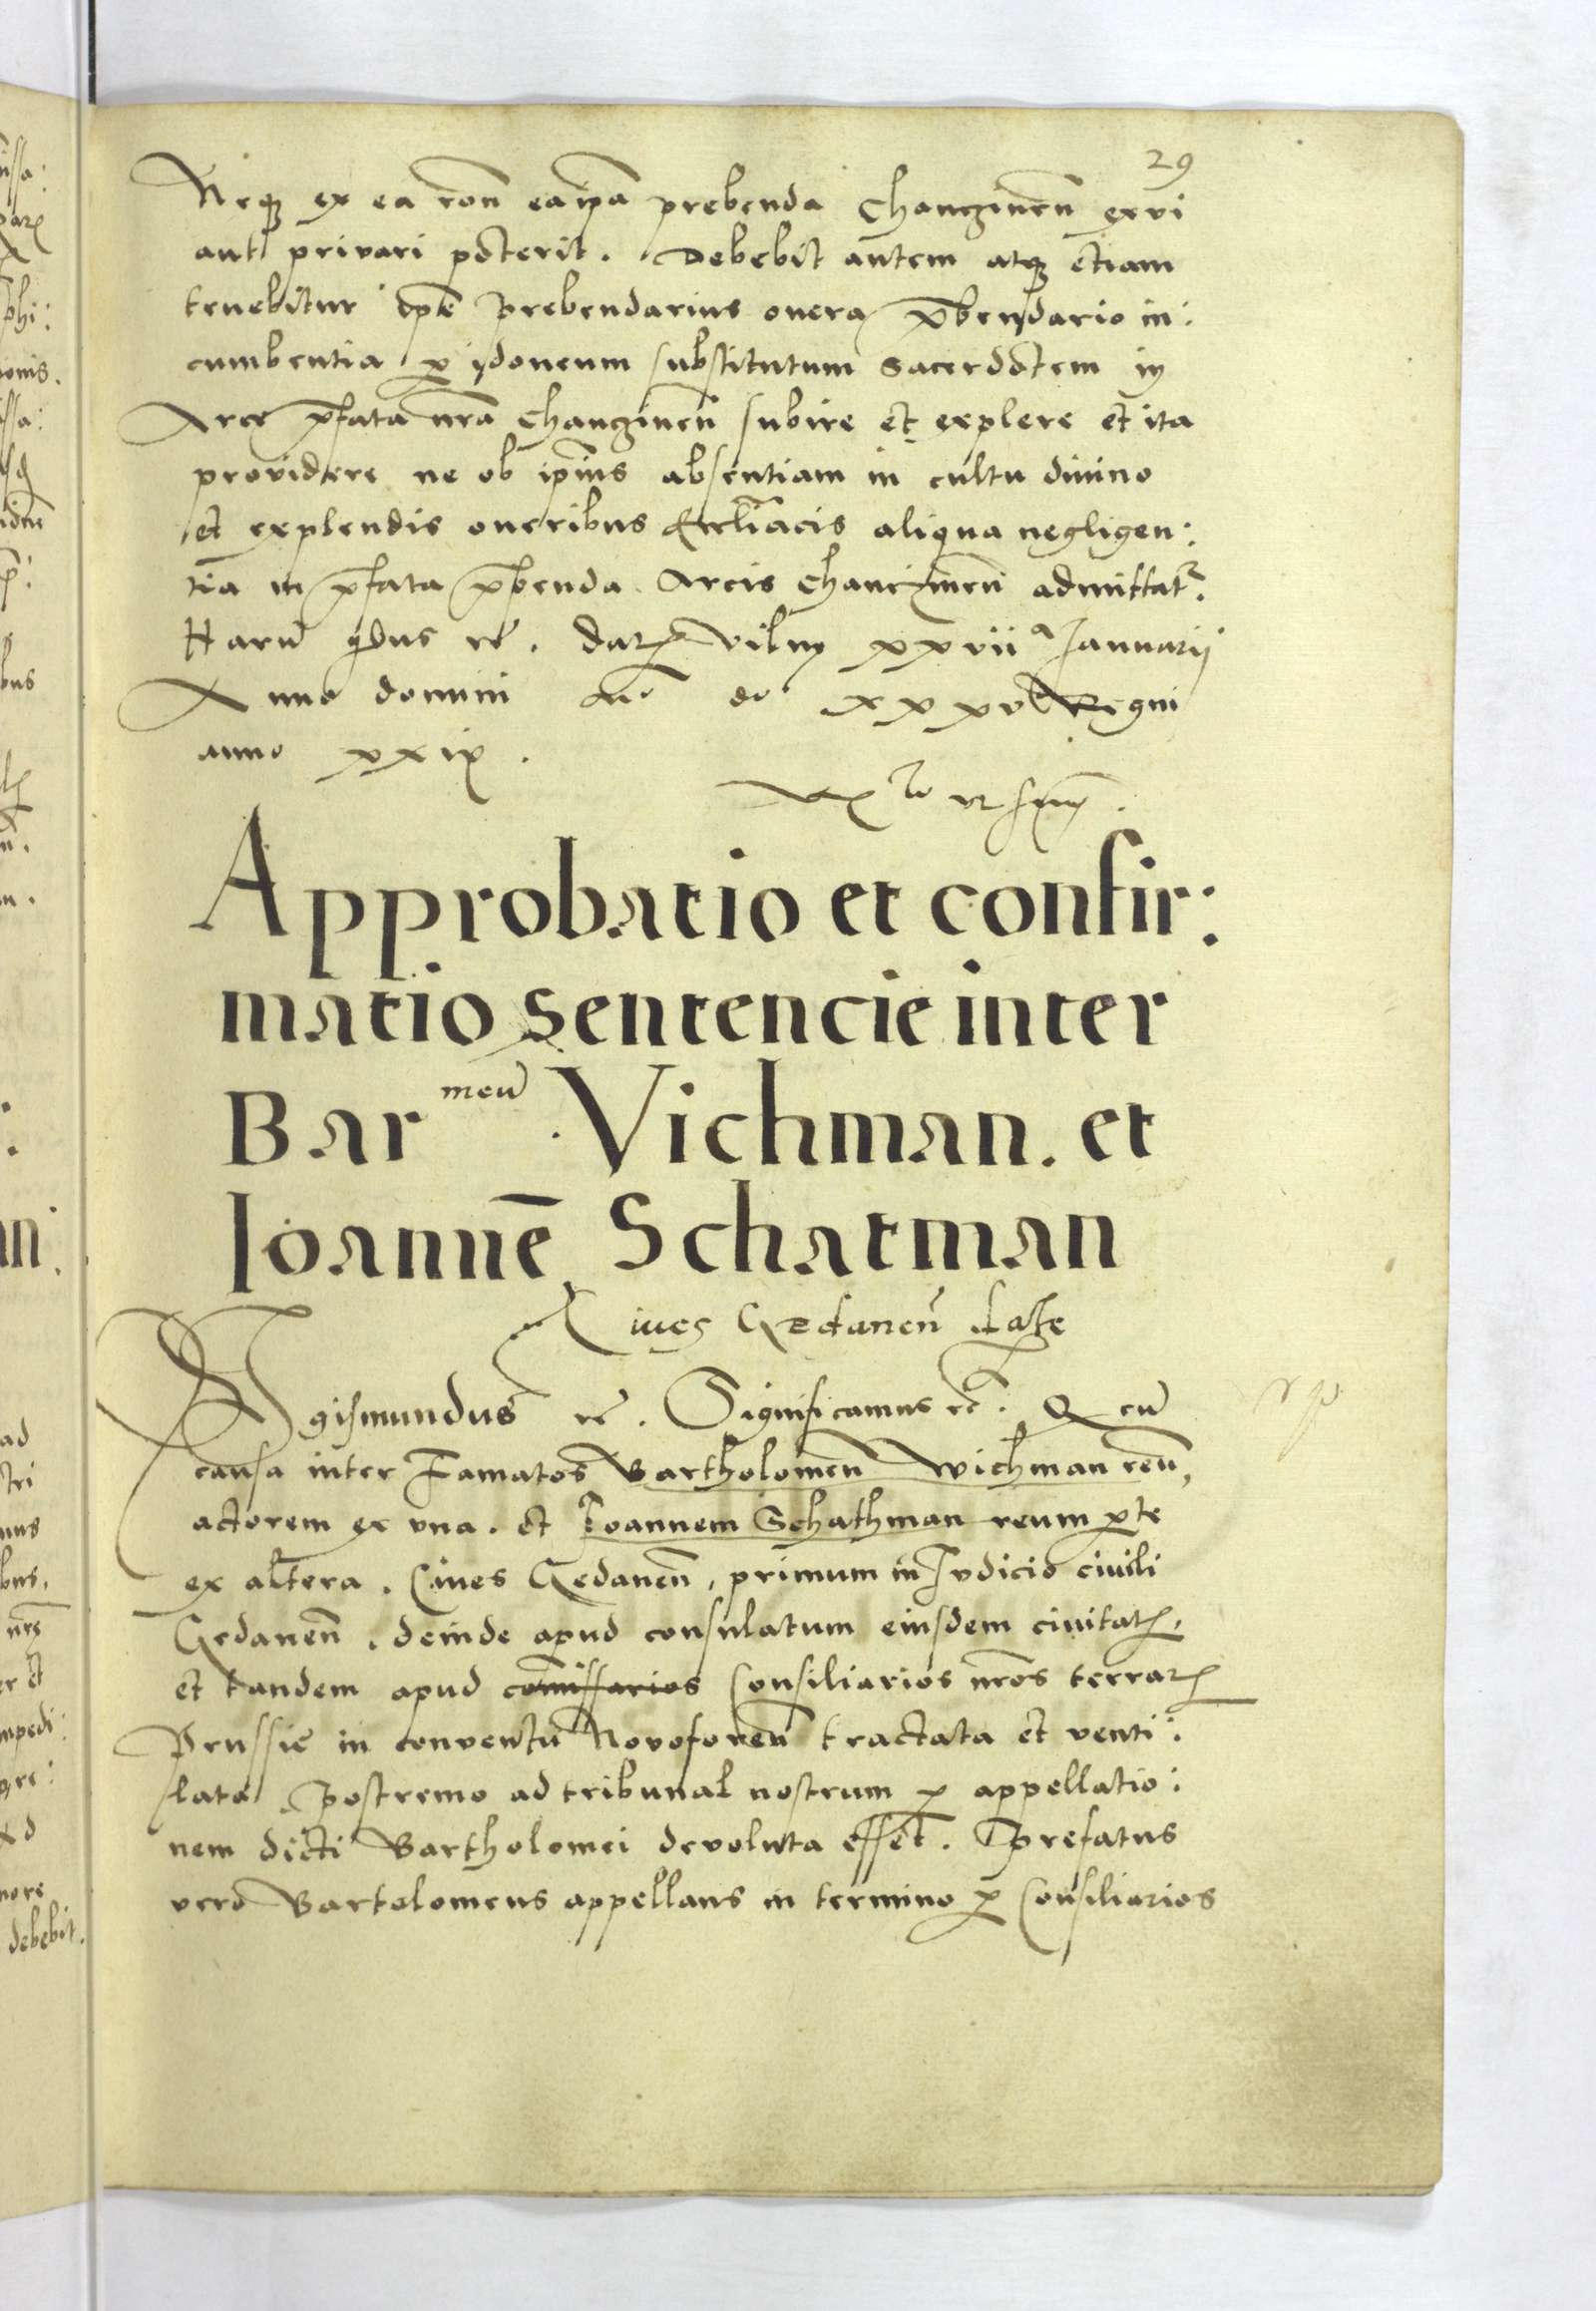 29
Neqꝫ ex ea rōn ea ip̄a prebenda Chanczinen̄ exvi
aut privari poterit. Debebit autem atqꝫ etiam
tenebitur Prebendarius onera p̄bendario in:
cumbentia ꝑ idoneum substitutum Sacerdotem in
Arce p̄fata nr̄a Chanczinen̄ subire et explere et ita
providere ne ob ip̄ius absentiam in cultu divino
et explendis oneribus Eccl̄iacis aliqua negligen:
tia in p̄fata p̄benda Arcis Chancinen̄ admittatr.
Harū qbus rc̄. Datꝝ Vilnȩ xxvii a Januarij
Anno domini mo do xxxvto Regni
anno xxix.
ut
Approbatio et confir:
matio sentencie inter
Bar meū . Vichman . et
Ioannē Schatman
Ciues Gedanen̄ Late
Sigismundus rc̄. Significamus rc̄. Q cū
causa inter Famatos Bartholomeū Wichman reū,
actorem ex una. et Ioannem Schathman reum ꝑte
ex altera. Ciues Gedanen̄, primum in Iudicio ciuili
Gedanen̄. deinde apud consulatum eiusdem ciuitatꝭ,
et tandem apud com̄issarios Consiliarios nr̄os terraꝝ
Prussie in conventu Novoforen̄ tractata et venti:
lata Postremo ad tribunal nostrum ꝑ appellatio:
nem dicti Bartholomei devoluta esset. Prefatus
vero Bartolomeus appellans in termino ꝑ Consiliarios